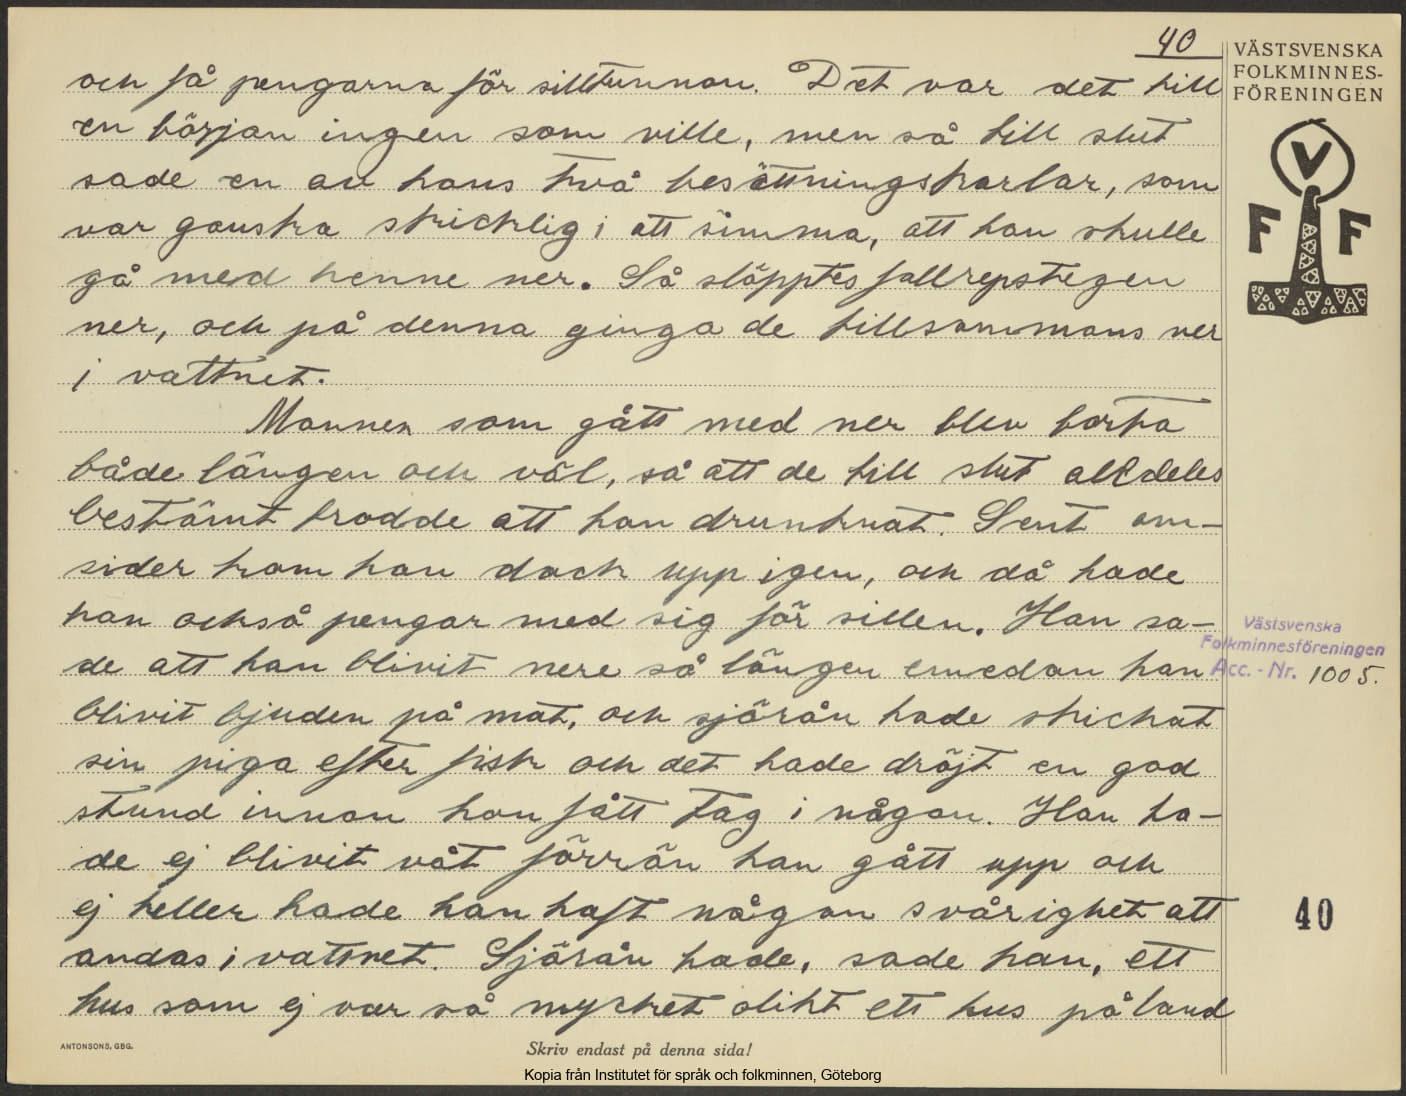 40
VÄSTSVENSKA
FOLKMINNES-
FÖRENINGEN
V
F F
och få pengarna för silltunnan. Det var det till
en början ingen som ville, men så till slut
sade en av hans två besättningskarlar, som
var ganska skicklig i att simma, att han skulle
gå med henne ner. Så släpptes fallrepstegen
ner, och på denna gingo de tillsammans ner
i vattnet.
Mannen som gått med ner blev borta
både längen och väl, så att de till slut alldeles
bestämt trodde att han drunknat. Sent om-
sider kom han dock upp igen, och då hade
han också pengar med sig för sillen. Han sa-
de att han blivit nere så längen emedan han
blivit bjuden på mat, och sjörån hade skickat
sin piga efter fisk och det hade dröjt en god
stund innan hon fått tag i någon. Han ha-
de ej blivit våt förrän han gått upp och
ej heller hade han haft någon svårighet att
andas i vattnet. Sjörån hade, sade han, ett
hus som ej var så mycket olikt ett hus på land
Västsvenska
Folkminnesföreningen
Acc. - Nr. 1005.
40
ANTONSONS, GBG.
Skriv endast på denna sida!
Kopia från Institutet för språk och folkminnen, Göteborg